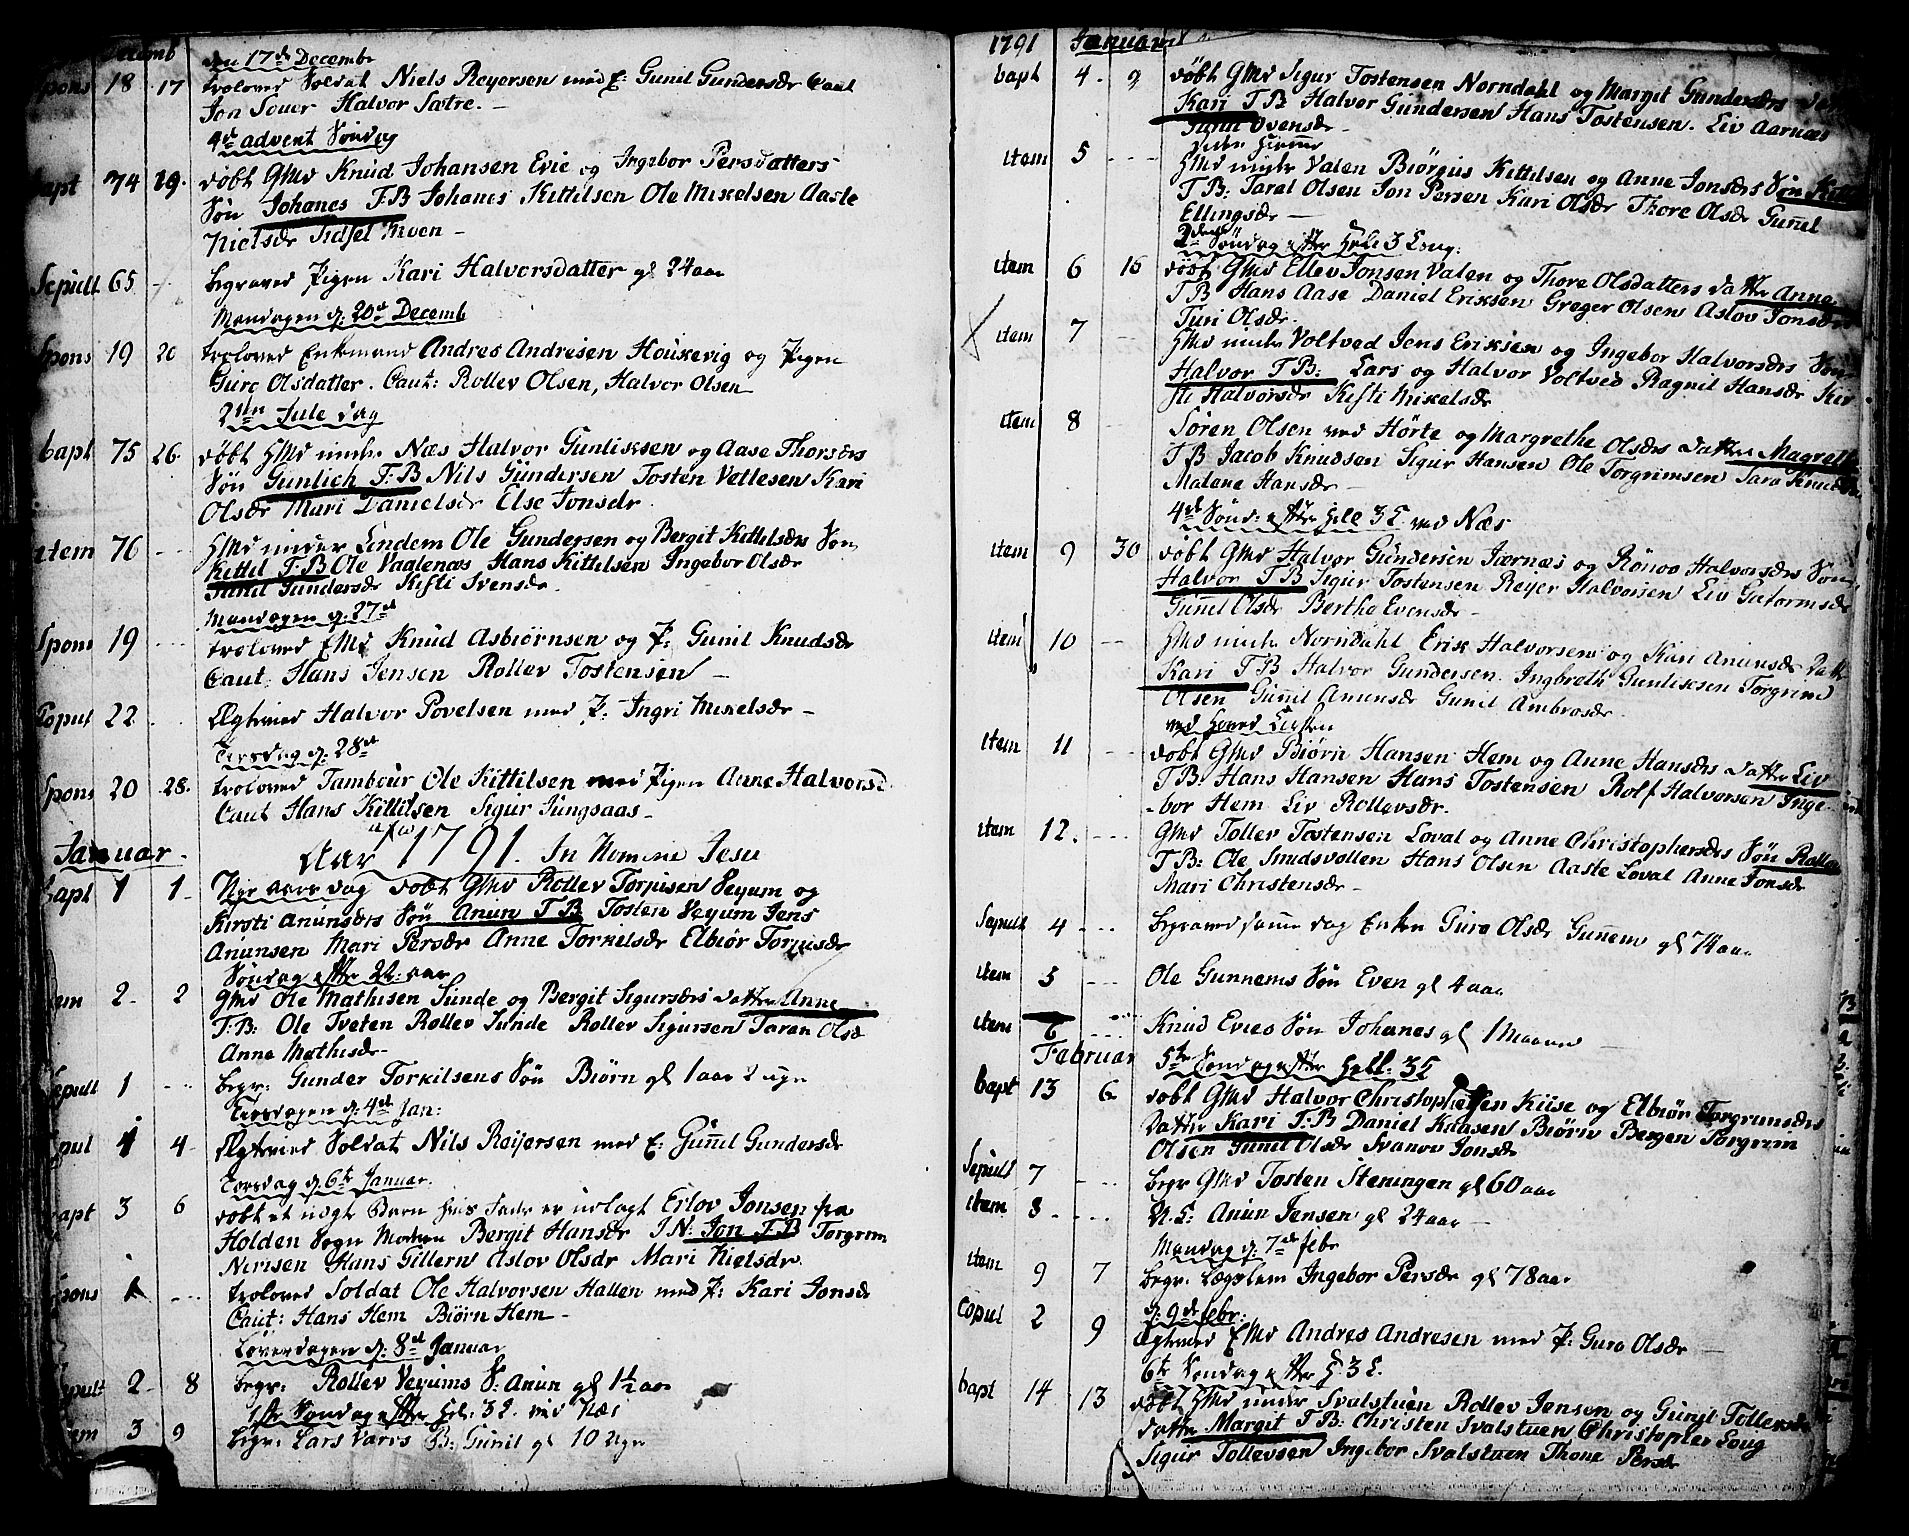 Decemb
den 17de Decembr
Spons 18 17 troloved Soldat Niels Reyersen med E: Gunil Gundersdr Caut
Jon Souer Halvor Sætre. –
4de advent Søndag
bapt 74 19. døbt GMd Knud Johansen Evie og Ingebor Persdatters
Søn Johanes F.B Johanes Kittilsen Ole Mikelsen Aaste
Nielsdr Sidsel Moen –
Sepult 65 - begraved Pigen Kari Halvorsdatter gl 24 aar
Mandagen d: 20de Decemb
Spons 19 20 troloved Enkemand Andres Andresen Houkevig og Pigen
Guro Olsdatter. Caut: Rollev Olsen, Halvor Olsen
2den Jule dag
bapt 75 26. døbt HMd under Næs Halvor Gunliksen og Aase Thorsdrs
Søn Gunlich F:B Nils Gundersen Tosten Vettesen Kari
Olsdr Mari Danielsdr Else Jonsdr.
item 76 --- HMd under Lindem Ole Gundersen og Bergit Kittilsdrs Søn
Kittel F:B Ole Vaalenæs Hans Kittilsen Ingebor Olsdr
Gunil Gundersdr Kisti Svensdr.
Mandagen d: 27de
Spons 19 --- troloved EMd Knud Asbiørnsen og P: Gunil Knudsdr
Caut: Hans Jensen Rollev Tostensen –
Copul 22 - Ægtevied Halvor Povelsen med P: Ingri Mikelsdr –
Tirsdag d: 28de
Spons 20 28. troloved Tambour Ole Kittilsen med Pigen Anne Halvorsd
Caut Hans Kittilsen Sigur Jungsaas –
Januar. Aar 1791. In Nomine Jesu
bapt 1 1 Nyt aars dag døbt GMd Rollev Torjusen Veyum og
Kirsti Anunsdrs Søn Anun F B Tosten Veyum Jens
Anunsen Mari Persdr Anne Torkilsdr Elbiør Torjusdr
Søndag efter Nyt: aar
item 2 - 2 GMd Ole Mathisen Sunde og Bergit Sigursdrs datter Anne
F.B: Ole Tveten Rollev Sunde Rollev Sigursen Taran Olsd
Anne Mathisdr –
Sepult 1 --- begr: Gunder Torkilsens Søn Biørn gl 1 aar 2 uger
Tirsdagen d: 4de Jan:
Copul 1 4 Ægteviet Soldat Nils Reijersen med E: Gunil Gundersdr
Torsdag d 6te Januar.
bapt 3 6 døbt et uægte Barn hvis Fader er udlagt Erlov Jonsen fra
Holden Sogn Moderen Bergit Hansdr J N: Jon F:B Torgrim
Nirisen Hans Gillern Aslov Olsdr Mari Nielsdr
Spons 1 --- troloved Soldat Ole Halvorsen Hallen med P: Kari Jonsdr
Caut: Hans Hem Biørn Hem –
Løverdagen d: 8de Januar
Sepult 2 - 8 begr: Rollev Veyums S: Anun gl 1½ aar
1ste Søndag efter Hel: 3 K. ved Næs
item 3 9 begr: Lars Vares B: Gunil gl 10 Uger
1791 Januarii
bapt 4. 9 døbt GMd Sigur Tostensen Norndahl og Margit Gundersdrs dat
Kari F B Halvor Gundersen Hans Tostensen. Liv Aarnæs
Gunil Svensdr –
item 5 --- HMd under Valen Biørgius Kittilsen og Anne Jonsdrs Søn Kittil
F B: Taral Olsen Jon Persen Kari Olsdr Thore Olsdr Gunil
Ellingsdr –
2den Søndag efter Hell: 3 Kong:
item 6 16 døbt GMd Ellev Jonsen Valen og Thore Olsdatters datter Anne
F B Hans Aase Daniel Eriksen Greger Olsen Aslov Jonsdr
Turi Olsdr.
item 7 HMd under Voltved Jens Eriksen og Ingebor Halvorsdrs Søn
Halvor F B: Lars og Halvor Voltved Ragnil Hansdr Kir
sti Halvorsdr Kisti Mikelsdr
item 8 Søren Olsen ved Hørte og Margrethe Olsdrs datter Magrethe
F B Jacob Knudsen Sigur Hansen Ole Torgrimsen Sara Knudsdr
Malene Hansdr –
4de Sønd: efter Hell 3 K ved Næs
item 9 30 døbt GMd Halvor Gundersen Jærnæs og Rønov Halvorsdrs Søn
Halvor F B Sigur Tostensen Reijer Halvorsen Liv Gutormsdr
Gunil Olsdr Berthe Evensdr –
item 10 -- HMd under Norndahl Erik Halvorsen og Kari Anunsdr Datt
Kari F B Halvor Gundersen. Ingbreth Gunliksen Torgrim
Olsen Gunnil Anunsdr Gunil Ambrosdr.
ved Hoved Kirken
item 11 --- døbt GMd Biørn Hansen Hem og Anne Hansdrs datter Liv
F B: Hans Hansen Hans Tostensen Rolf Halvorsen Inge-
-bor Hem Liv Rollevsdr.
item 12. --- GMd Tollev Tostensen Loval og Anne Christophersdrs Søn Rollev
F B: Ole Smedsvollen Hans Olsen Aaste Loval Anne Jonsdr
Mari Christensdr –
Sepult 4 --- begraved samme dag Enken Guro Olsdr Gunnem gl 74 aar
item 5 --- Ole Gunnems Søn Even gl 4 aar
item 6 --- Knud Evies Søn Johanes gl 1 Maaned –
Februar 5te Søndag efter Hell. 3 K
bapt 13 6. døbt GMd Halvor Christophersen Kiise og Elbiør Torgrimsdrs
Datter Kari F:B Daniel Kaasen Biørn Bergen Torgrim
Olsen Gunil Olsdr Svanov Jonsdr
Sepult 7 --- begr GMd Tosten Steningen gl 60 aar
item 8 --- N.L: Anun Jensen gl 24 aar –
Mandag d: 7de febr
item 9 7 begr: Lægslem Ingebor Persdr gl 78 aar
d: 9de febr:
Copul 2 9 Ægteviet EMd Andres Andresen med P: Guro Olsdr –
6te Søndag efter H. 3 K.
bapt 14 13 døbt HMd under Svalstuen Rollev Jensen og Gunil Tollevsdr
datter Margit F B: Christen Svalstuen Christopher Loug
Sigur Tollevsen Ingebor Svalstuen Thone Persdr